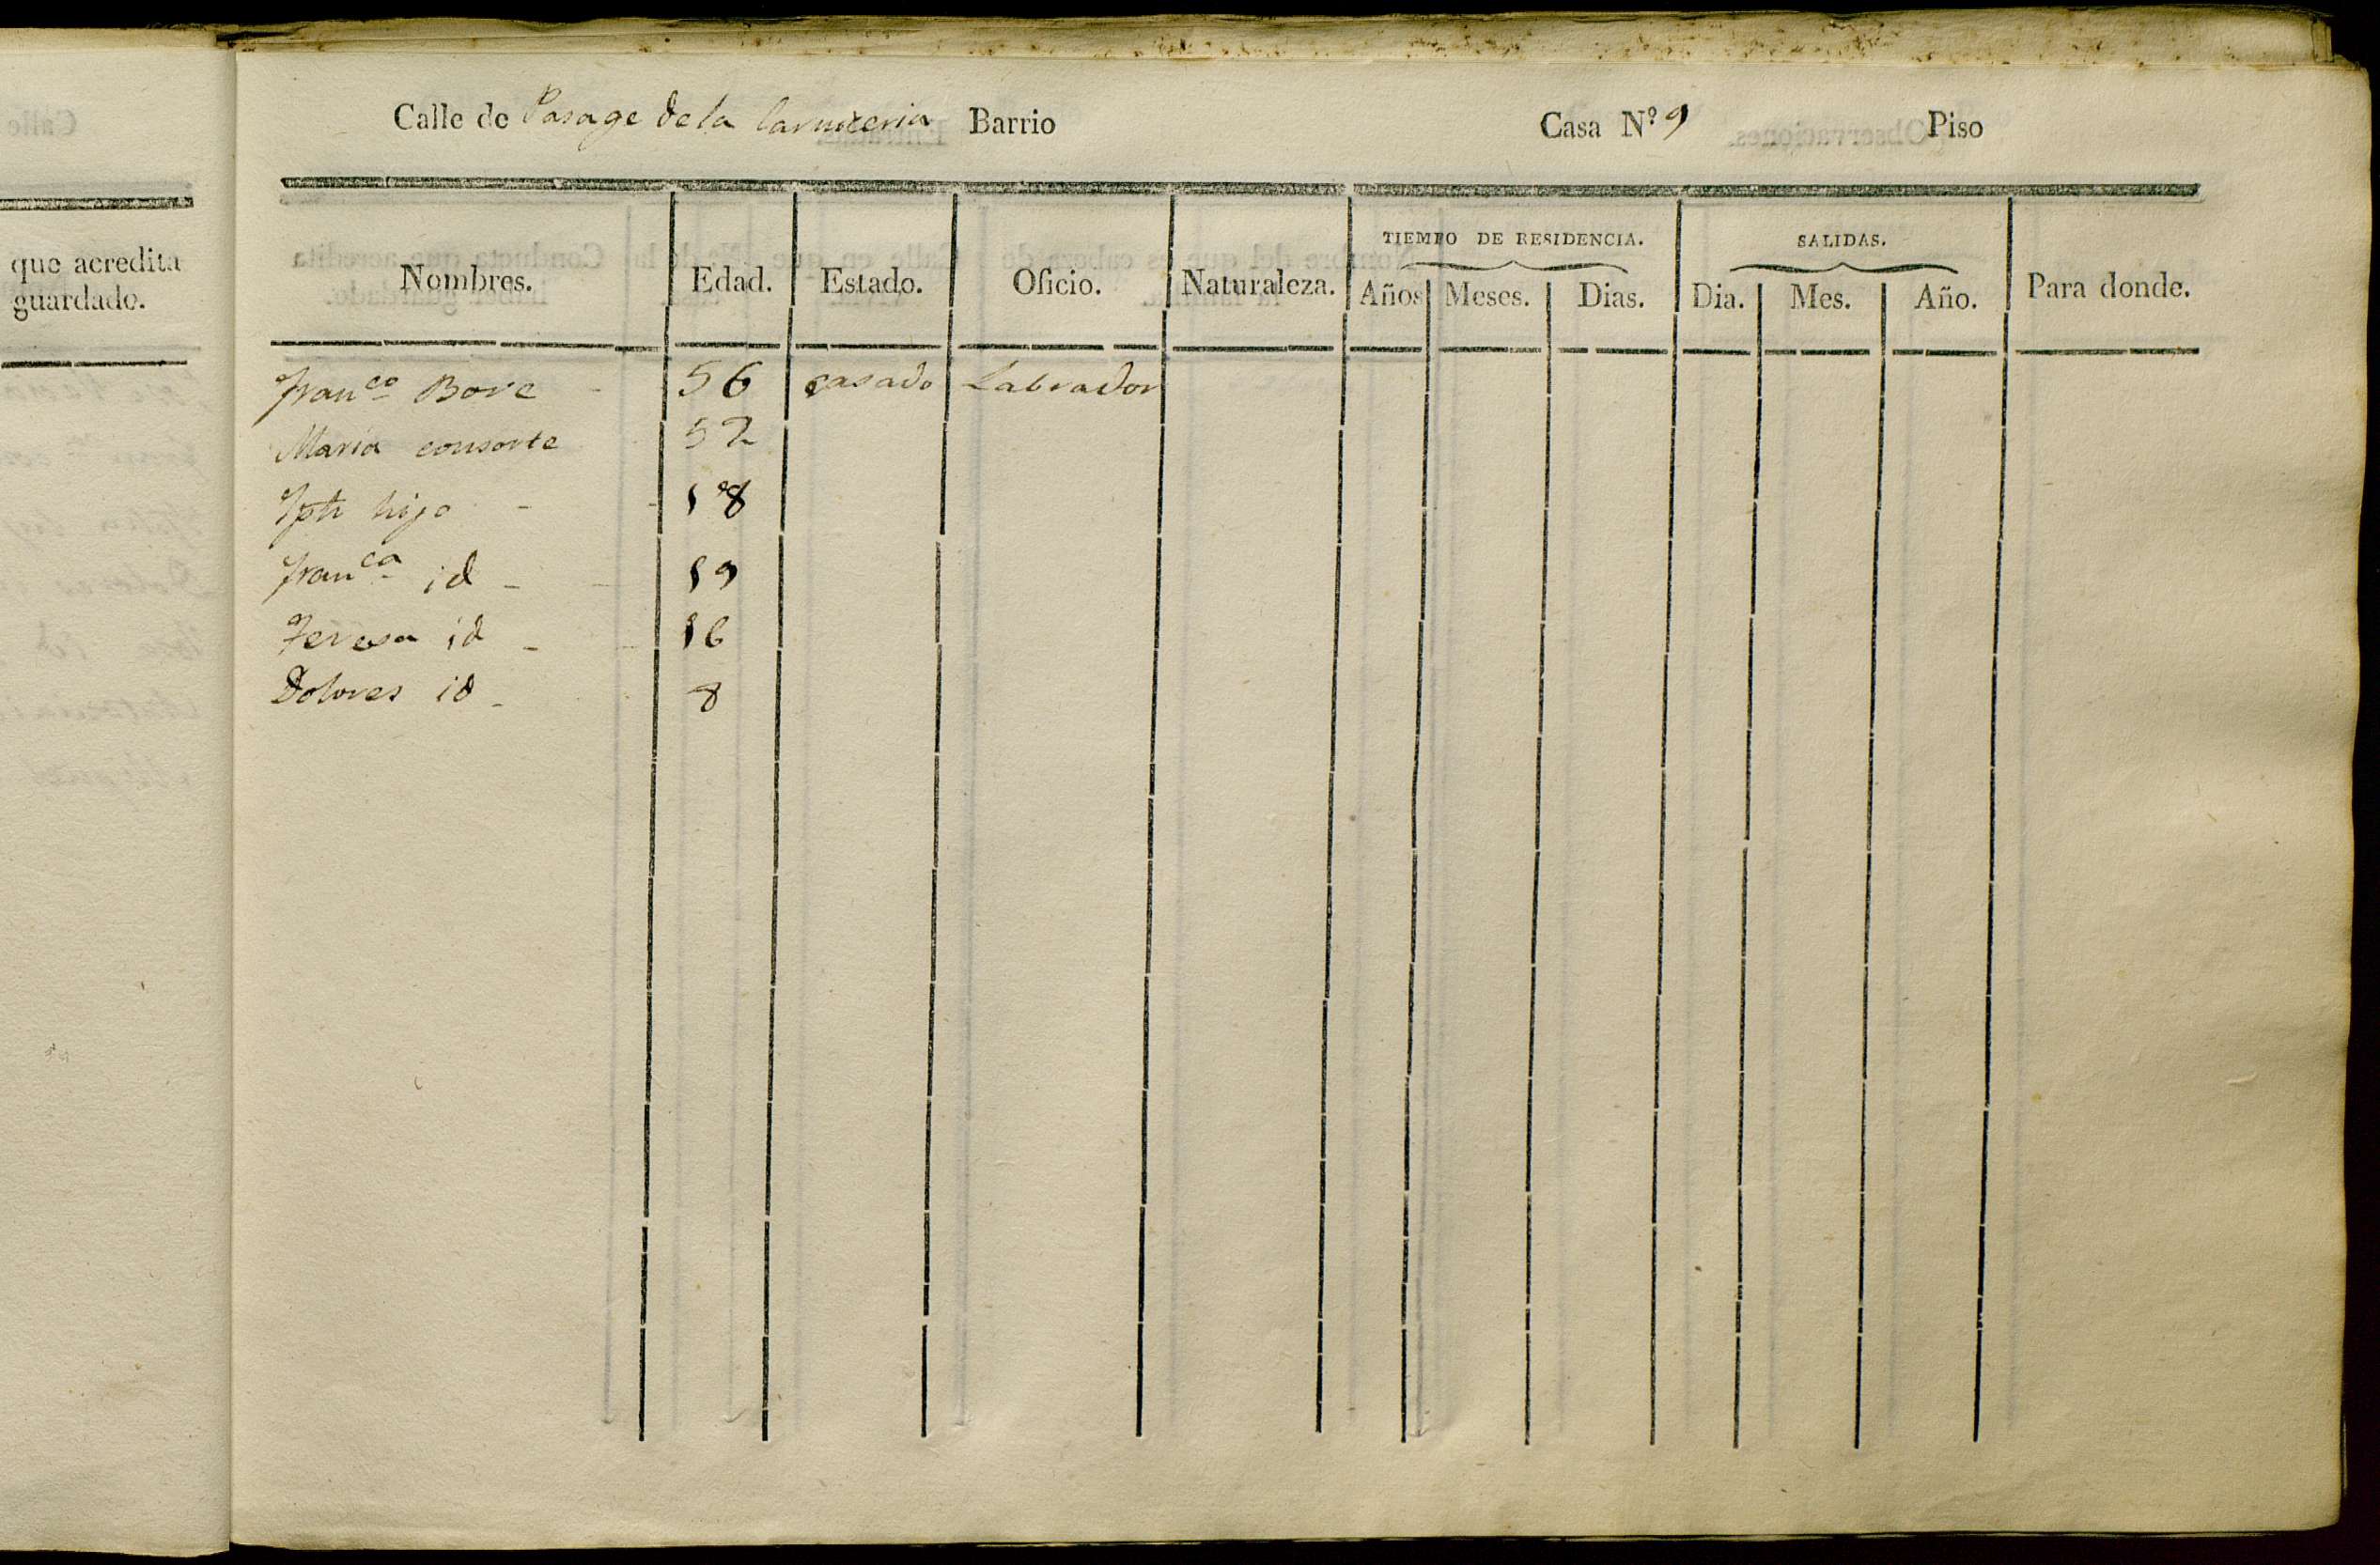 que acredita
guardado.
Calle de Pasage de la Carniceria Barrio Casa Nº 9 Piso
Nombres. Edad. Estado. Oficio. Naturaleza. TIEMPO DE RESIDENCIA. SALIDAS. Para donde.
Años Meses. Dias. Dia. Mes. Año.
Franco Bove - 56 casado Labrador
Maria consorte 52
Jph hijo - 18
Franca id - 19
Teresa id - 16
Dolores id - 8